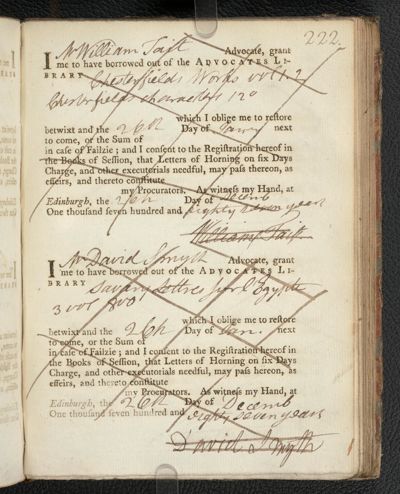 222.
I Mr William Tait Advocate, grant
me to have borrowed out of the ADVOCATES LI-
BRARY Chesterfield's Works vol 1. 2
Chesterfields characters 12o
which I oblige me to restore
betwixt and the 26th Day of Janry next
to come, or the Sum of
in case of Failzie; and I consent to the Registration hereof in
the Books of Session, that Letters of Horning on six Days
Charge, and other executorials needful, may pass thereon, as
effeirs, and thereto constitute
my Procurators. As witness my Hand, at
Edinburgh, the 26th Day of Decemb
One thousand seven hundred and eighty seven years
William Tait
I Mr David Smyth Advocate, grant
me to have borrowed out of the ADVOCATES LI-
BRARY Savary Lettres sur l'Egypte
3 vols 8vo
which I oblige me to restore
betwixt and the 26th Day of Jan. next
to come, or the Sum of
in case of Failzie; and I consent to the Registration hereof in
the Books of Session, that Letters of Horning on six Days
Charge, and other executorials needful, may pass hereon, as
effeirs, and thereto constitute
my Procurators. As witness my Hand, at
Edinburgh, the 26th Day of Decemb
One thousand seven hundred and eighty seven years
David Smyth